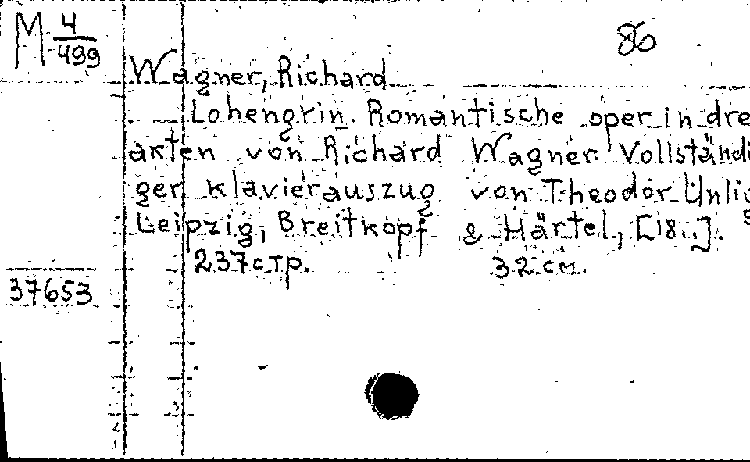 M 4/499
86
Wagner, Richard
Lohengrin. Romantische oper in dre
akten von Richard Wagner. Vollständi
ger klavierauszug von Theodor Unli
Leipzig, Breitkopf & Härtel, [18..].
237 стр. 32 см.
37653